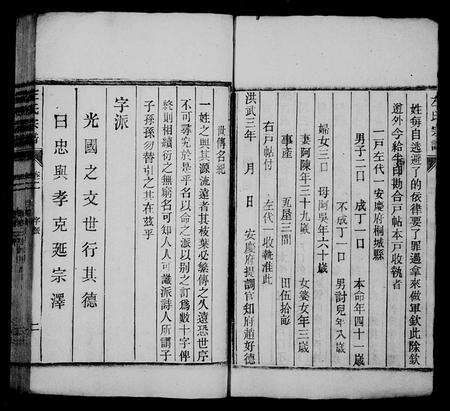 姓每自迯避了的依律要了罪過拿来做軍欽此除欽
遵外今給半印勘合戸帖本戸收執者
一戸左代一安慶府桐城縣
男子二口 成丁一口 本命年四十一歳
不成丁一口 男討兒年八歳
婦女三口 母阿吳年六十歳
妻阿陳年三十九歳 女婆女年三歳
事產 瓦屋三間 田伍拾畝
右戸帖付 左代一收執准此
洪武三年 月 日 安慶府提調官知府趙好德
世傳名紀
一姓之興其源流遠者其枝葉必繁傳之久遠恐世序
不可尋究於是乎名以命之派以别之訂為數十字俾
終則相續衍之無窮名可知人人可識派詩人所謂子
子孫孫勿替引之其在茲乎
字派
光國之文世行其德
曰忠與孝克延宗澤